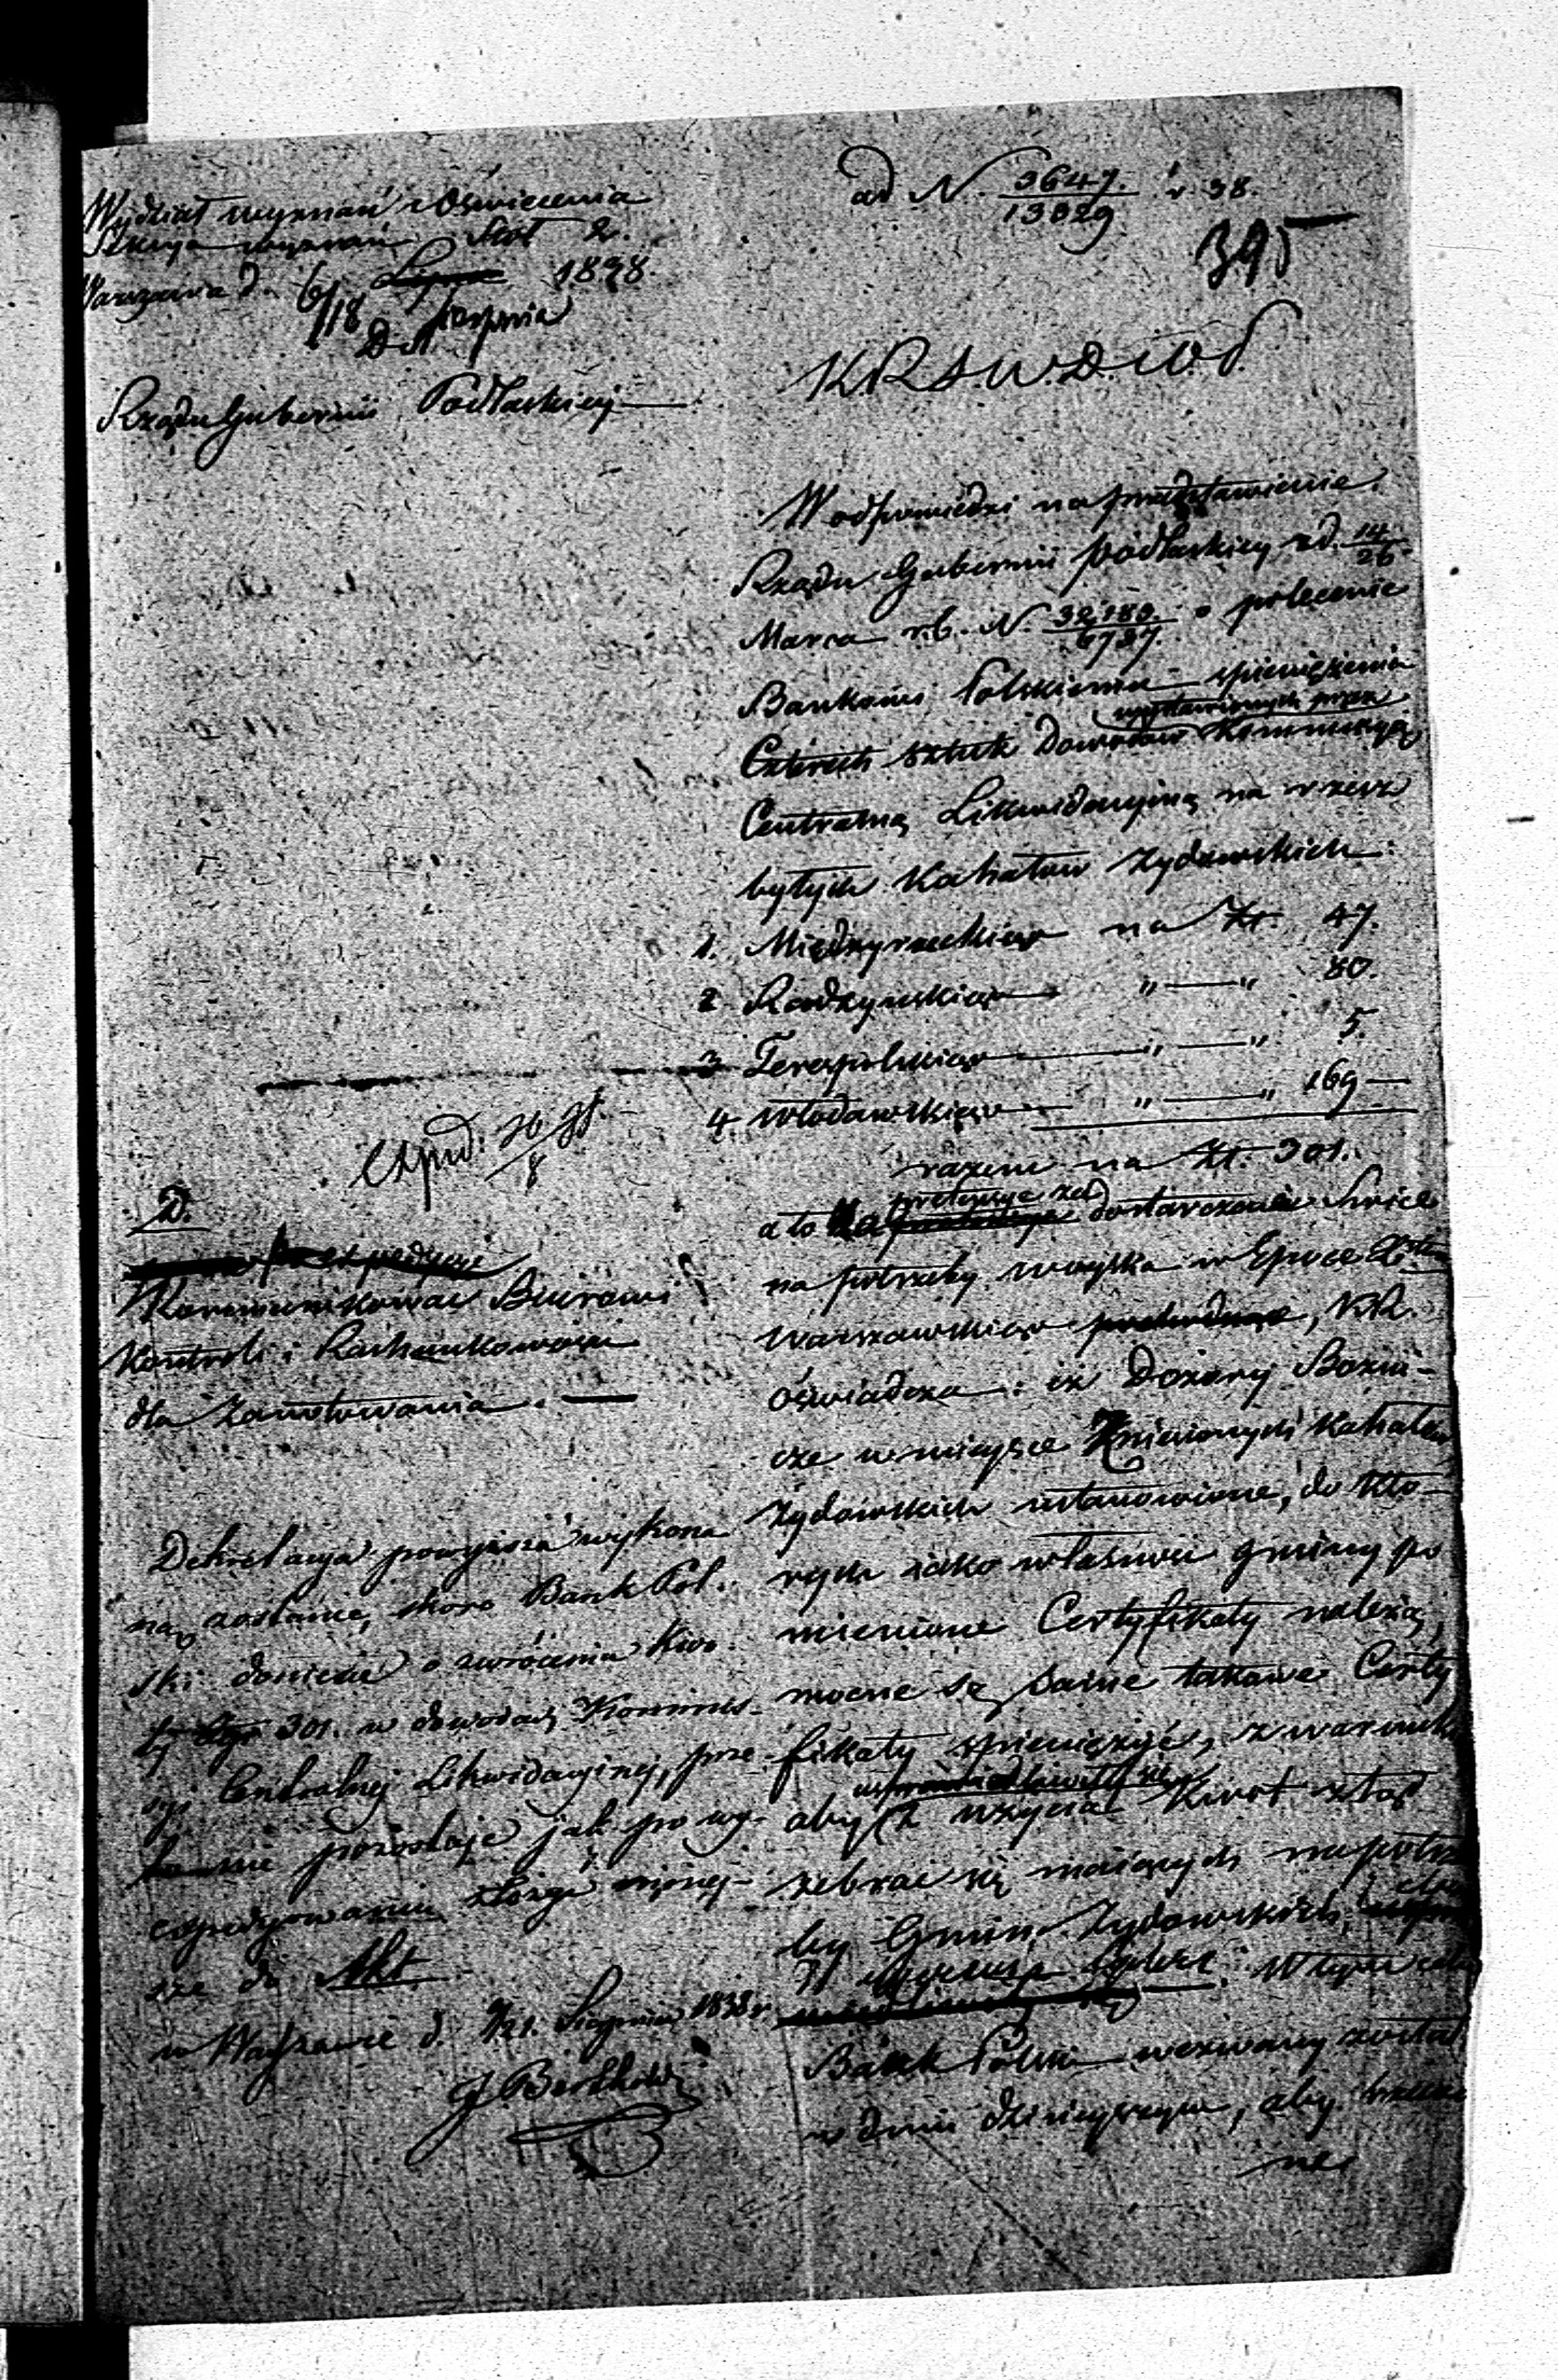 ad N. 3647./13029 r. 38.
395
Wydział wyznań i Oświecenia
Sekcya wyznań Stół 2.
Warszawa d. 6/18 Lipca 1838.
Sierpnia
Do
Rządu Gubernii Podlaskiej
K.R.S.W.D.i O.P.
W odpowiedzi na przedstawienie
Rządu Gubernii Podlaskiey z d. 14/26
Marca r.b. N. 32,180./6737 o polecenie
Bankowi Polskiemu spieniężenia
wystawionych przez
Czterech sztuk Dowodów Kommissyą
Centralną Likwidacyjną na rzecz
byłych Kahałów Żydowskich:
1. Międzyrzeckiego na Zł. 47.
2 Radzyńskiego " — " 80.
3 Terespolskiego " — " 5.
4 Włodawskiego " — " 169 —
razem na Zł. 301.
pretensye za
a to dostarczenie Świec
na potrzeby woyska w Epoce Xstwa
Warszawskiego, K.R.
oświadcza: iż Dozory Bożni-
cze w mieysce Zniesionych Kahałów
Żydowskich ustanowione, do któ-
rych jako właściwie gminy po
mienione Certyfikaty należą,
mocne są same takowe Certy
fikaty spieniężyć, z warunkiem
aby z użycia Kwot ztąd
zebrać się maiących na potrze
by Gmin Żydowskich,
W tym celu
Bank Polski wezwany został
w dniu dzisieyszym, aby
ne
Exped: 26/8
D.
Kommunikować Biurowi
Kontroli i Rachunkowości
dla Zanotowania. —
Dekretacya powyższa wykona
ną zostanie, skoro Bank Pol.
ski doniesie o zwróceniu Kwo.
ty Złp 301. w dowodach Kommis-
syi Centralnej Likwidacyjnej,
nie pozostaje jak po wy-
expedyowaniu złożyć niniej-
sze do Akt.
w Warszawie d. 9/21. Sierpnia 1838 r.